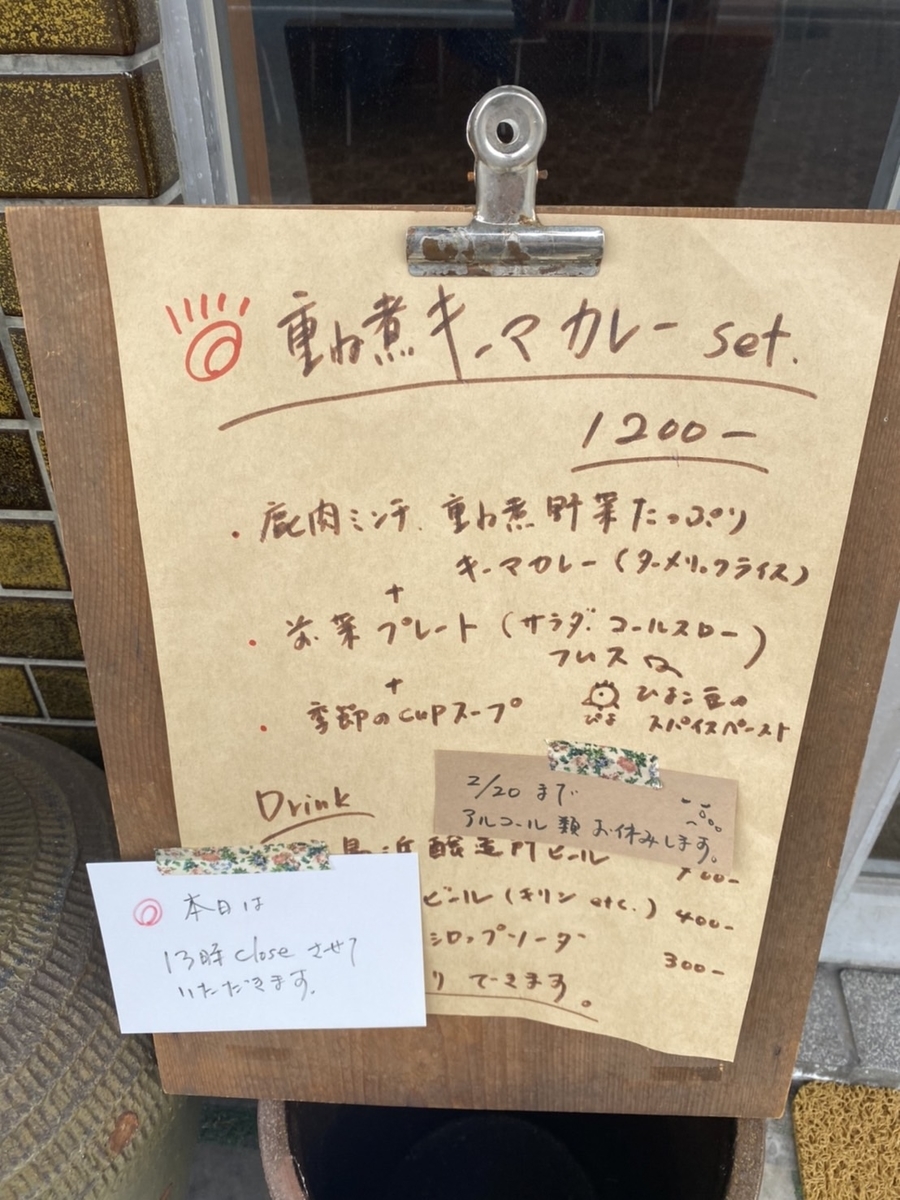 重ね煮キーマカレー set.
1200-
・鹿肉ミンチ、重ね煮野菜たっぷり
キーマカレー(ターメリックライス)
+
・お菜プレート(サラダ、コールスロー)
フムス
ひよこ豆の
ぴよ スパイスペースト
+
・季節のcupスープ
Drink
2/20 まで
アルコール類お休みします。
醸造所ビール
ビール(キリン etc.) 400-
シロップソーダ 300-
り できます。
本日は
13時 close させて
いただきます。